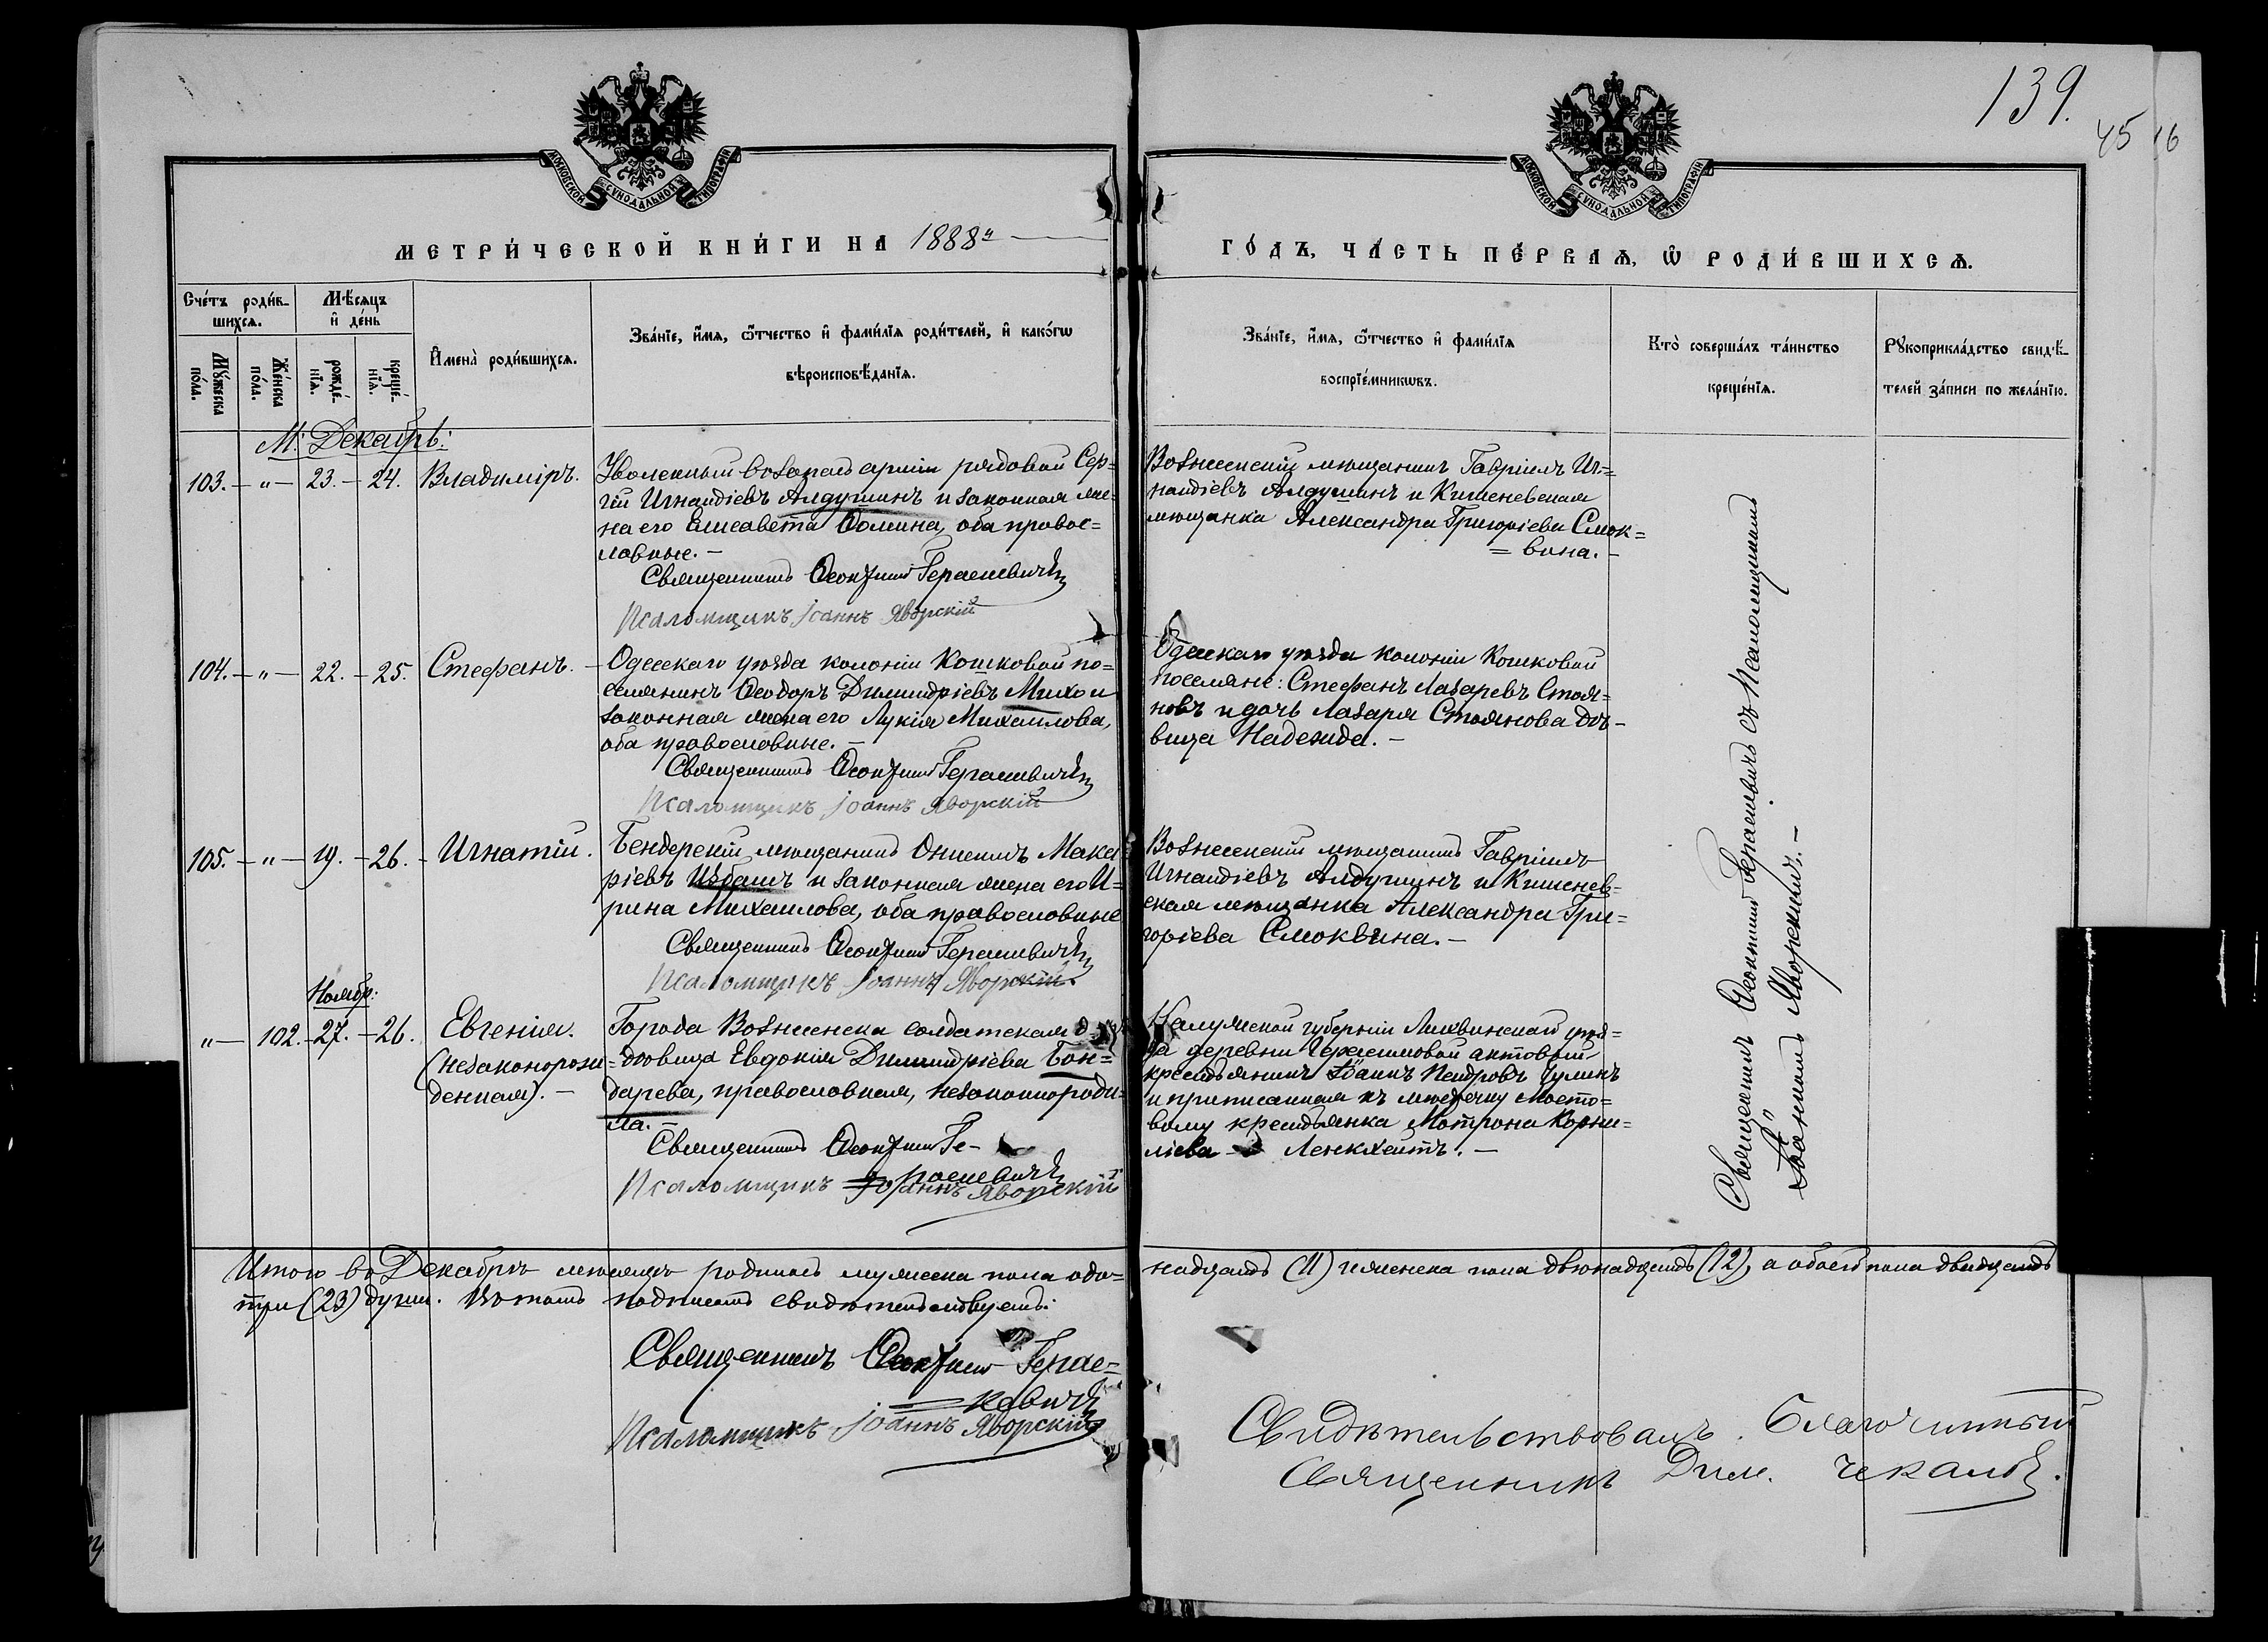 139.
45
16
МОСКОВСКОЙ СУНОДАЛЬНОЙ ТИПОГРАФІИ
МОСКОВСКОЙ СУНОДАЛЬНОЙ ТИПОГРАФІИ
МЕТРИ́ЧЕСКОЙ КНИ́ГИ НА 1888й
ГО́ДЪ, ЧА́СТЬ ПЕ́РВАѦ, Ѡ҆ РОДИ́ВШИХСѦ.
Сче́тъ роди́в-
шихсѧ.
Мѣ́сѧцъ
и҆ де́нь
Мꙋ́жеска
по́ла.
Же́нска
по́ла.
рожде́-
нїѧ.
креще́-
нїѧ.
И҆мена̀ роди́вшихсѧ.
Зва́нїе, и҆́мѧ, ѻ҆́тчество и҆ фами́лїѧ роди́телей, и҆ како́гѡ
вѣроисповѣ́данїѧ.
Зва́нїе, и҆́мѧ, ѻ҆́тчество и҆ фами́лїѧ
воспрїе́мникѡвъ.
Кто̀ соверша́лъ та́инство
креще́нїѧ.
Рꙋкоприкла́дство свидѣ́-
телей за́писи по жела́нїю.
М: Декабрь:
103. — " — 23. — 24. Владиміръ.
Уволенный въ запасъ арміи рядовой Сер=
гій Игнатіевъ Алдушинъ и законная же=
на его Елисавета Ѳомина, оба правос=
лавные. —
Священникъ Ѳеоктистъ Герасевичъ
Псаломщикъ Іоаннъ Яворскій
Вознесенскій мѣщанинъ Гавріилъ Иг=
натіевъ Алдушинъ и Кишеневская
мѣщанка Александра Григоріева Смок=
= вина. —
104. — " — 22. — 25. Стефанъ. —
Одесскаго уѣзда колоніи Кошковой по=
селянинъ Ѳеодоръ Димитріевъ Михо и
законная жена его Лукія Михаилова,
оба православные. —
Священникъ Ѳеоктистъ Герасевичъ
Псаломщикъ Іоаннъ Яворскій
Одесскаго уѣзда колоніи Кошковой
поселяне: Стефанъ Лазаревъ Стоя=
новъ и дочь Лазаря Стоянова дѣ-
вица Надежда. —
105. — " — 19. — 26. — Игнатій.
Бендерскій мѣщанинъ Онисимъ Мака
ріевъ Избашъ и законная жена его И=
рина Михаилова, оба православные
Священникъ Ѳеоктистъ Герасевичъ
Псаломщикъ Іоаннъ Яворскій
Вознесенскій мѣщанинъ Гавріилъ
Игнатіевъ Алдушинъ и Кишенев=
ская мѣщанка Александра Гри=
горіева Смоквина. —
Ноябр:
" — 102. — 27. — 26. Евгенія.
(незаконорож=
денная). —
Города Вознесенска солдатская
вдовица Евдокія Димитріева Бон=
дарева, православная, незаконнороди=
ла. —
Священникъ Ѳеоктистъ Ге-
расевичъ
Псаломщикъ Іоаннъ Яворскій
Калужской губерніи Лихвинскаго уѣз=
да деревни Герасимовой актовой
крестьянинъ Іоаннъ Петровъ Гулинъ
и приписанная къ мѣстечку Мосто=
вому крестьянка Мотрона Корни=
ліева — Ленкхейтъ. —
Священникъ Ѳеоктистъ Герасевичъ съ Псаломщикомъ
Іоанномъ Яворскимъ. —
Итого въ Декабрѣ мѣсяцѣ родилось мужеска пола оди=
надцать (11) женска пола двѣнадцать (12), а обоего пола двадцать
три (23) души. Въ томъ подписомъ свидѣтельствуемъ:
Священникъ Ѳеоктистъ Герас=
= кевичъ
Псаломщикъ Іоаннъ Яворскій
Свидѣтельствовалъ. Благочинный
Священникъ Дим. Чеканъ.